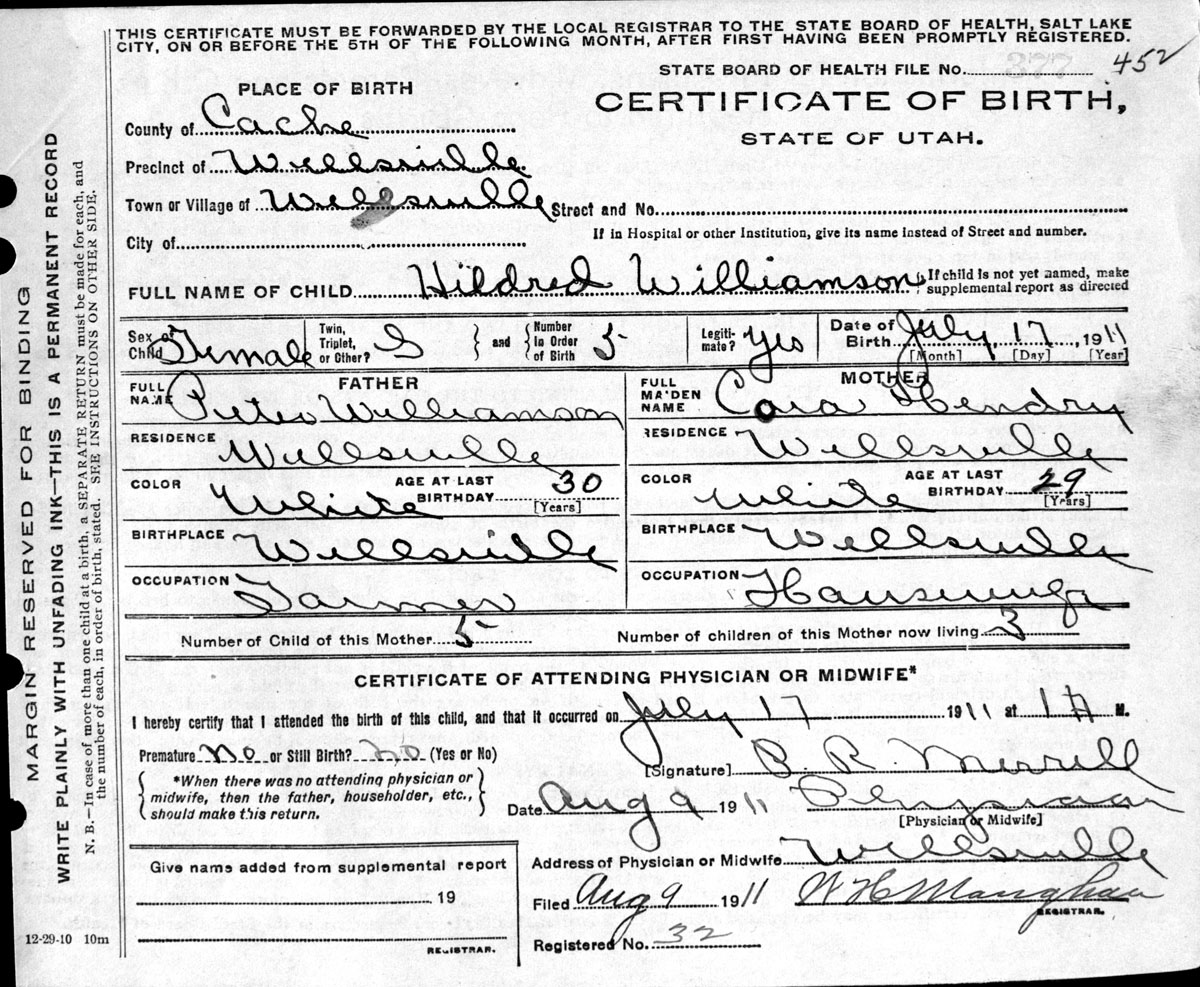 THIS CERTIFICATE MUST BE FORWARDED BY THE LOCAL REGISTRAR TO THE STATE BOARD OF HEALTH, SALT LAKE
CITY, ON OR BEFORE THE 5TH OF THE FOLLOWING MONTH, AFTER FIRST HAVING BEEN PROMPTLY REGISTERED.
STATE BOARD OF HEALTH FILE No. 377 452
PLACE OF BIRTH
CERTIFICATE OF BIRTH,
STATE OF UTAH.
County of Cache
Precinct of Wellsville
Town or Village of Wellsville Street and No.
City of If in Hospital or other Institution, give its name instead of Street and number.
FULL NAME OF CHILD Hildred Williamson If child is not yet named, make supplemental report as directed
Sex of Child Female Twin, Triplet, or Other? S and Number in Order of Birth 5 Legitimate? Yes Date of Birth July 17, 1911
[Month] [Day] [Year]
FATHER
FULL NAME Peter Williamson
RESIDENCE Wellsville
COLOR White AGE AT LAST BIRTHDAY 30 [Years]
BIRTHPLACE Wellsville
OCCUPATION Farmer
MOTHER
FULL MAIDEN NAME Cora Hendry
RESIDENCE Wellsville
COLOR White AGE AT LAST BIRTHDAY 29 [Years]
BIRTHPLACE Wellsville
OCCUPATION Housewife
Number of Child of this Mother 5 Number of children of this Mother now living 3
CERTIFICATE OF ATTENDING PHYSICIAN OR MIDWIFE*
I hereby certify that I attended the birth of this child, and that it occurred on July 17 1911 at 1 A M.
Premature no or Still Birth? no (Yes or No)
*When there was no attending physician or
midwife, then the father, householder, etc.,
should make this return.
[Signature] P. R. Merrill
Date Aug 9 1911 Physician
[Physician or Midwife]
Address of Physician or Midwife Wellsville
Filed Aug 9 1911 W H Maughan
REGISTRAR.
Registered No. 32
Give name added from supplemental report
19
REGISTRAR.
12-29-10 10m
MARGIN RESERVED FOR BINDING
WRITE PLAINLY WITH UNFADING INK—THIS IS A PERMANENT RECORD
N. B.—In case of more than one child at a birth, a SEPARATE RETURN must be made for each, and
the number of each, in order of birth, stated. SEE INSTRUCTIONS ON OTHER SIDE.